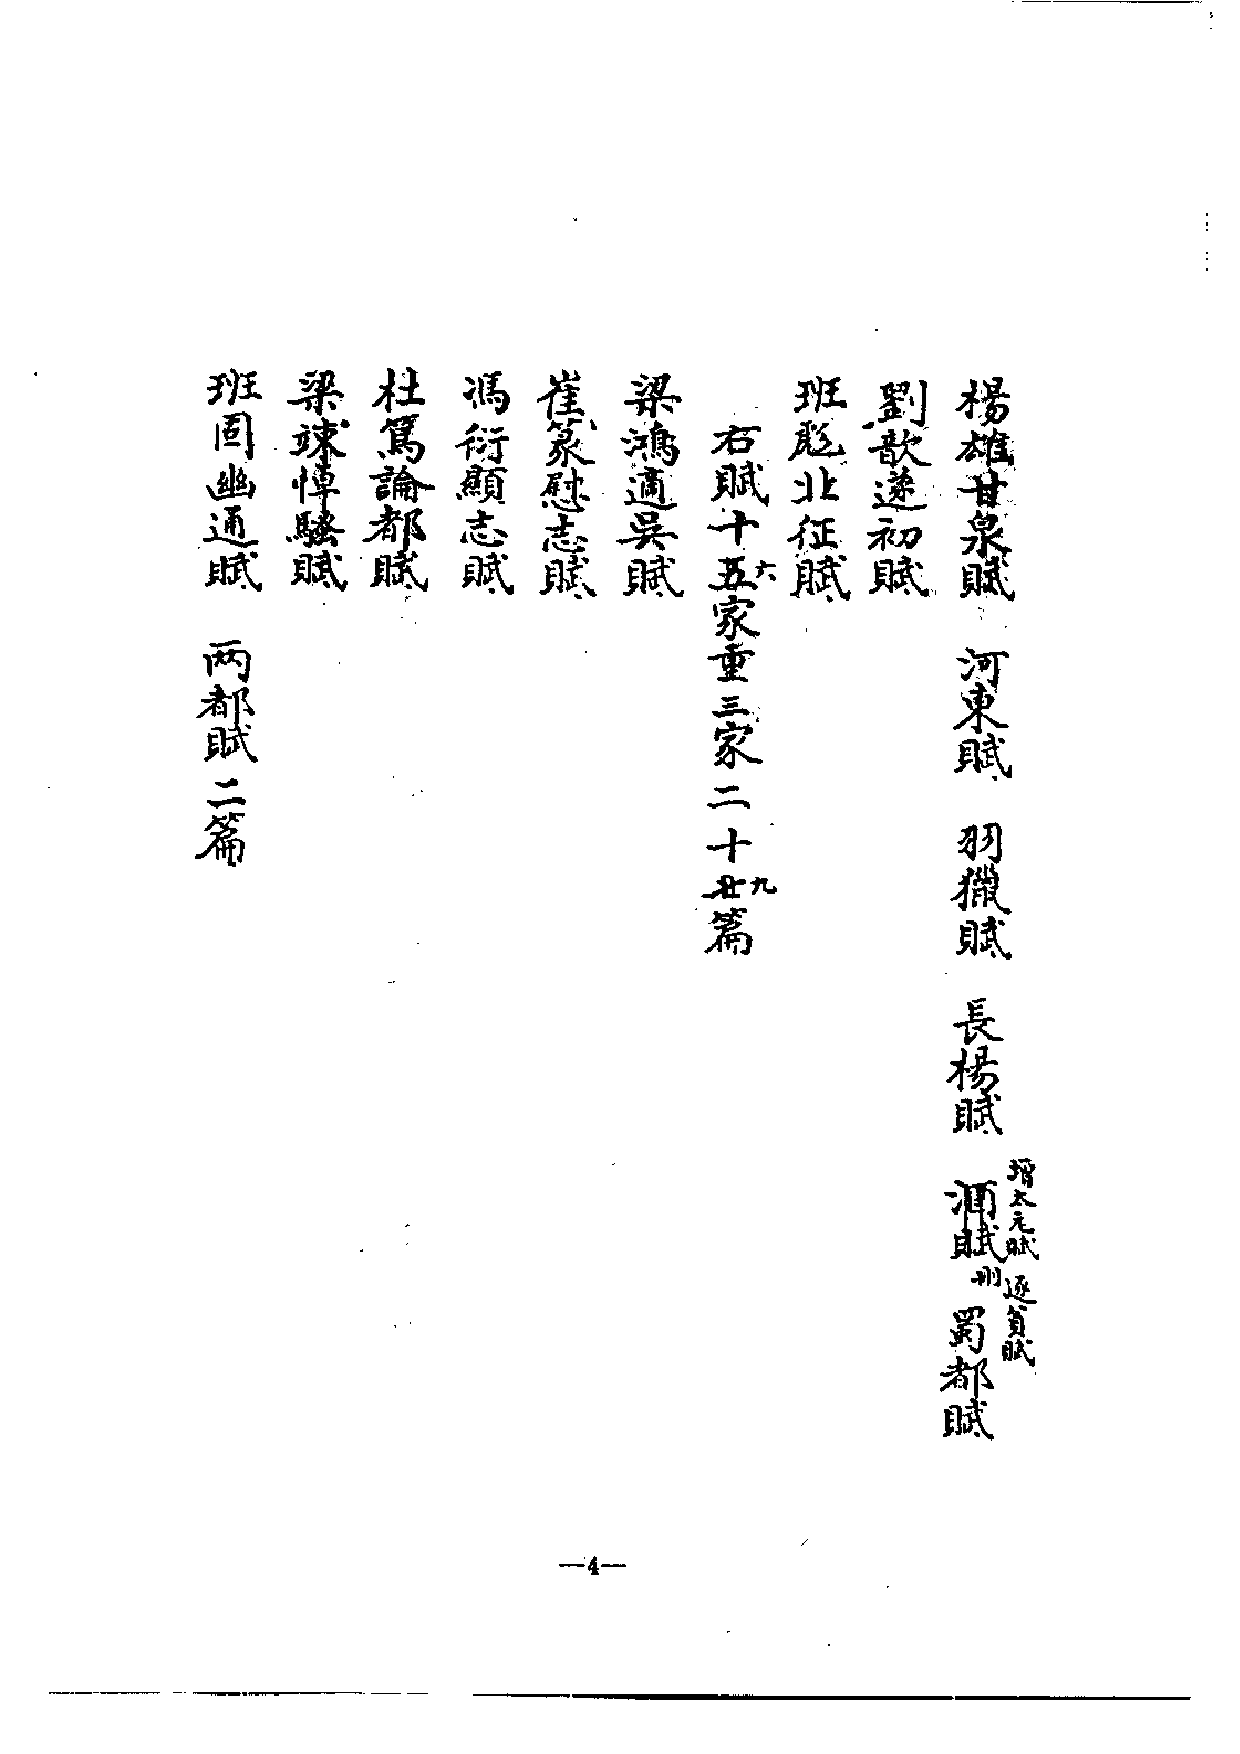 楊雄甘泉賦　河東賦　羽獵賦　長楊賦　酒賦刪　蜀都賦
增太元賦　逐貧賦
劉歆遂初賦
班彪北征賦
右賦十五六家重三家二十七九篇
梁鴻適吳賦
崔篆慰志賦
馮衍顯志賦
杜篤論都賦
梁竦悼騷賦
班固幽通賦　两都賦二篇
—4—